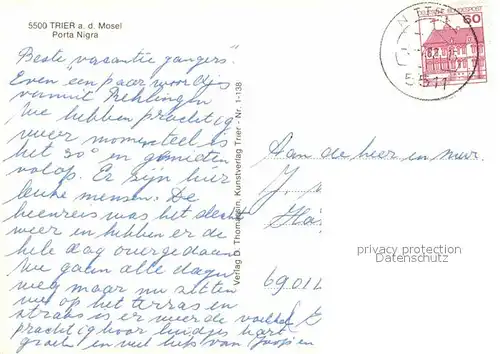 5500 TRIER a. d. Mosel
Porta Nigra
Beste vacantie gangers.
Even een paar woordjes
vanuit Rehlingen
We hebben prachtig
weer momenteel is
het 30° en genieten
volop. Er zijn hier
leuke mensen. De
heenreis was het slecht
weer en hebben er de
hele dag over gedaan
We gaan alle dagen
weg maar nu zitten
we op het terras en
straks is er weer de
prachtig hoor
groeten en veel liefs van Joop en
Verlag D. Thomassin, Kunstverlag Trier - Nr. 1-138
DEUTSCHE BUNDESPOST
60
NITTEL
5511
Aan de heer en mevr.
J.
6901
privacy protection
Datenschutz